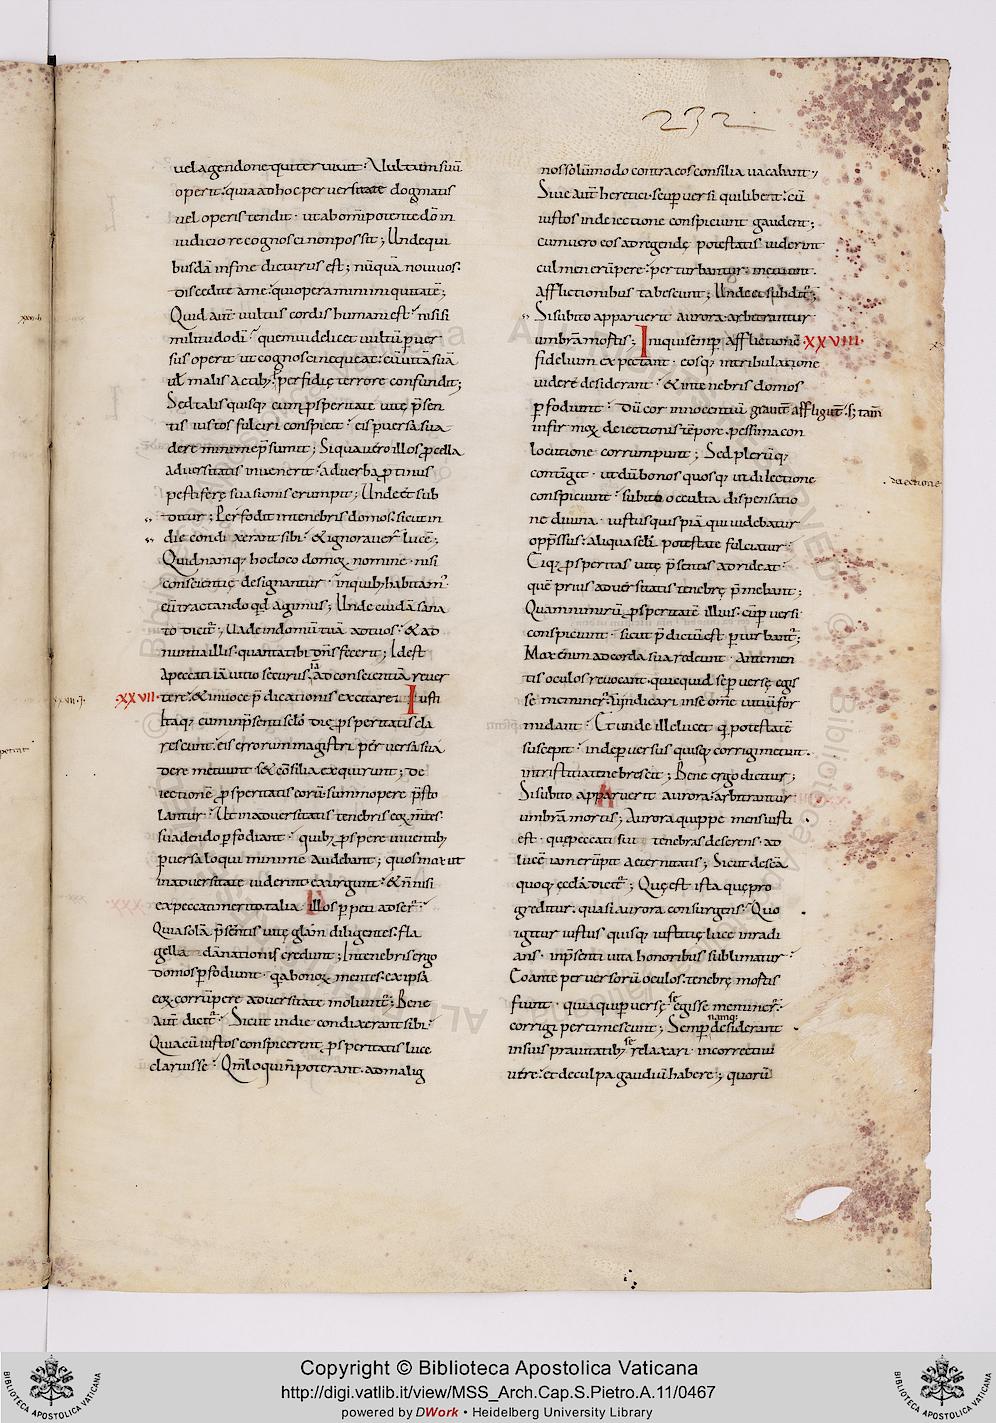 232
uel agendo nequiter uiuit. Uultum suū
operit. quia ad hoc peruersitate dogmatis
uel operis tendit. ut ab om̄ipotente dō in
iudicio recognosci non possit; Unde qui
busdā in fine dicturus est; nūquā noui uos.
discedite a me. qui operamini iniquitatē;
Quid aut̄ uultus cordis humani est. nisi si
militudo dī. quem uidelicet uultū ꝑuer
sus operit ut cognosci nequeat. cū uitā suā
ul malis actibꝰ. ꝑfidię terrore confundit;
Sed talis quisqꝫ cum ꝓsperitate uitę p̄sen
tis iustos fulciri conspicit. eis ꝑuersa sua
dere minime p̄sumit; Si qua uero illos ꝓcella
aduersitatis inuenerit. ad uerba ꝓtinus
pestiferę suasionis erumpit; Unde et sub
ditur; Perfodit in tenebris domos. sicut in
die condixerant sibi. & ignorauer̄ lucē;
Quid namqꝫ hoc loco domoꝝ nomine. nisi
conscientię designantur. in quibꝰ habitam̄.
cū tractando qd̄ agimus; Unde cuidā sana
to dicit̄; Uade in domū tuā ad tuos. & ad
nuntia illis. quanta tibi dn̄s fecerit; Id est
a peccati iā uitio securus. ad conscientiā reuer
XXVII. tere. & in uoce p̄dicationis excitare; Iusti
itaqꝫ cum in p̄senti sclō dię ꝓsperitatis cla
rescunt. eis errorum magistri peruersa sua
dere metuunt sed cōsilia exquirunt; De
iectionē ꝓsperitatis eorū summopere p̄sto
lantur. Ut in aduersitatis tenebris eoꝝ m̄tes
suadendo ꝑfodiant. quibꝰ ꝓspere uiuentibꝰ
ꝑuersa loqui minime audebant; quos mox ut
in aduersitate uiderint. exurgunt. & n̄ nisi
ex peccati merito talia illos ꝑpeti adser̄.
Quia solā p̄sentis uitę glām diligentes. fla
gella dānationis credunt; In tenebris ergo
domos ꝑfodiunt. q̄a bonoꝝ mentes. ex ipsa
eoꝝ corrūpere aduersitate moliunt̄; Bene
aut̄ dicit̄. Sicut in die condixerant sibi.
Quia cū iustos conspicerent ꝓsperitatis luce
claruisse. Qm̄ loqui n̄ poterant. ad malig
nos solūmodo contra eos consilia uacabant,
Siue aut̄ heretici. seu ꝑuersi quilibet. cū
iustos in deiectione conspiciunt gaudent;
cum uero eos ad regendę potestatis uiderint
culmen erūpere. perturbantur. metuunt.
afflictionibus tabescunt; Unde et subdit̄;
Si subito apparuerit aurora arbitrantur
umbrā mortis; Iniqui semꝑ afflictionē XXVIII.
fidelium expectant. eosqꝫ in tribulatione
uidere desiderant. & in tenebris domos
ꝑfodiunt. Dū cor innocentiū grauit̄ affligunt. & tam̄
infirmoꝝ deiectionis tēpore. pessima con
locutione corrumpunt; Sed plerūqꝫ
contīgit. ut dū bonos quosqꝫ ut dilectione
conspiciunt. subito occulta dispensatio
ne diuina. iustus quispiā qui uidebatur
opp̄ssus. aliqua scłi potestate fulciatur.
Eiqꝫ ꝓsperitas uitę p̄sentis adrideat.
quē prius aduersitatis tenebrę p̄mebant;
Quam nimirū ꝓsperitatē illius. cū ꝑuersi
conspiciunt. sicut p̄dictū est ꝑturbant̄;
Mox enim ad corda sua redeunt. ante men
tis oculos reuocant. quicquid se ꝑuersę egis
se meminer̄. uindicari in se om̄e uitiū for
midant. Et unde ille lucet q̄ potestatē
suscepit. inde ꝑuersus quisqꝫ corrigi metuit.
in tristitia tenebrescit; Bene ergo dicitur;
Si subito apparuerit aurora. arbitrantur
umbrā mortis; Aurora quippe mens iusti
est. quę peccati sui tenebras deserens. ad
lucē iam erūpit aeternitatis; Sicut de scā
quoqꝫ ecclā dicit̄; Quę est ista quę pro
greditur. quasi aurora consurgens. Quo
igitur iustus quisqꝫ iustitię luce inradi
ans. in p̄senti uita honoribus sublimatur.
Eo ante peruersorū oculos. tenebrę mortis
fiunt. quia qui ꝑuersę se egisse meminer̄.
corrigi pertimescunt; Semꝑ namqꝫ desiderant
in suis prauitatibꝰ se relaxari. incorrecti ui
uere. et de culpa gaudiū habere; quorū
Copyright © Biblioteca Apostolica Vaticana
http://digi.vatlib.it/view/MSS_Arch.Cap.S.Pietro.A.11/0467
powered by DWork • Heidelberg University Library